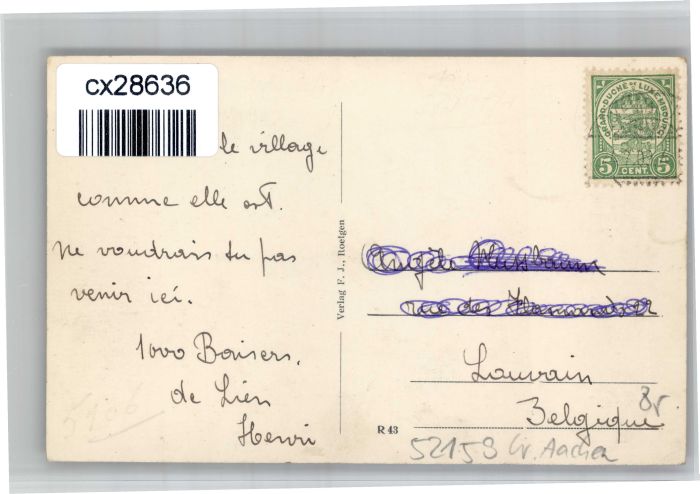 cx28636
le village
comme elle est.
ne voudrais tu pas
venir ici.
1000 Baisers.
de Lien
Henri
5906
Verlag F. J., Roelgen
R 43
GRAND-DUCHÉ DE LUXEMBOURG
5 CENT. 5
Angèle
rue des
Louvain
Belgique
8r
52159 Gr. Aachen